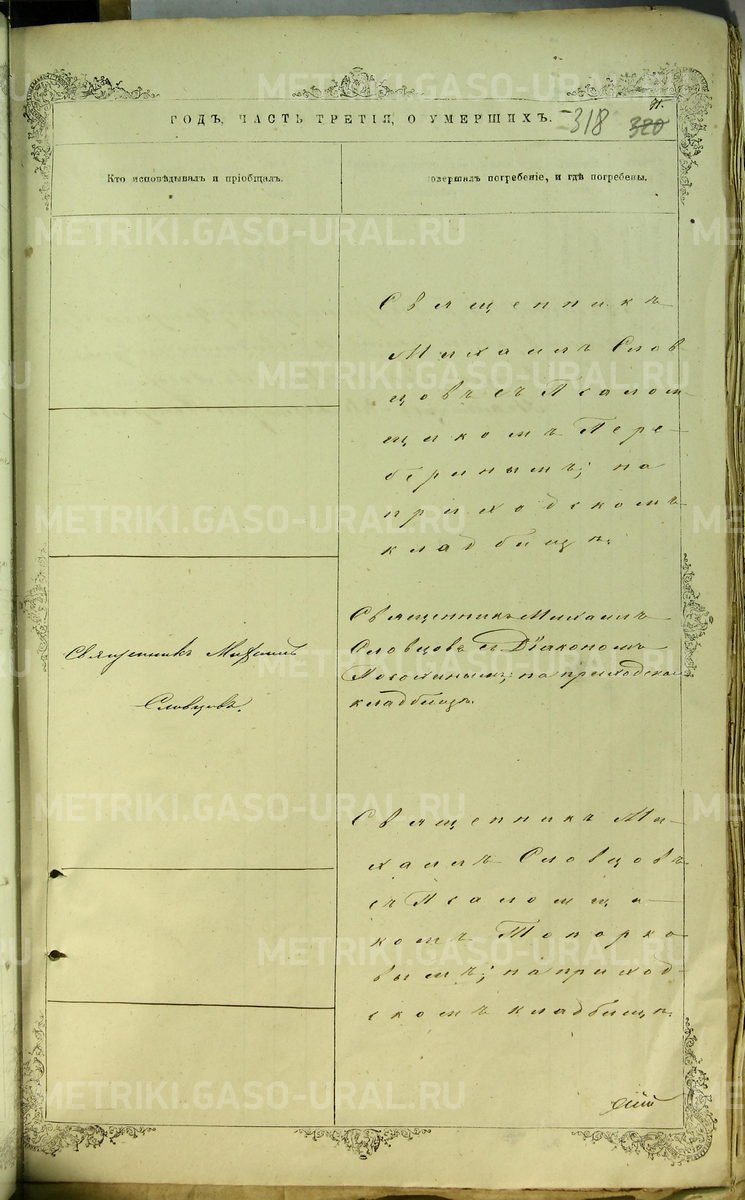 71.
ГОДЪ, ЧАСТЬ ТРЕТІЯ, О УМЕРШИХЪ. 318 320
Кто исповѣдывалъ и пріобщалъ.
совершалъ погребеніе, и гдѣ погребены.
Священникъ
Михаилъ Слов
цовъ съ Псаломщ
щикомъ Пере-
беринымъ; на
приходскомъ
кладбищѣ.
Священникъ Михаилъ
Словцовъ.
Священникъ Михаилъ
Словцовъ съ Діакономъ
на приходском
кладбищѣ.
Священникъ Ми-
хаилъ Словцовъ
съ Псаломщи-
комъ Топорко-
вымъ; на приход-
скомъ кладбищѣ.
METRIKI.GASO-URAL.RU